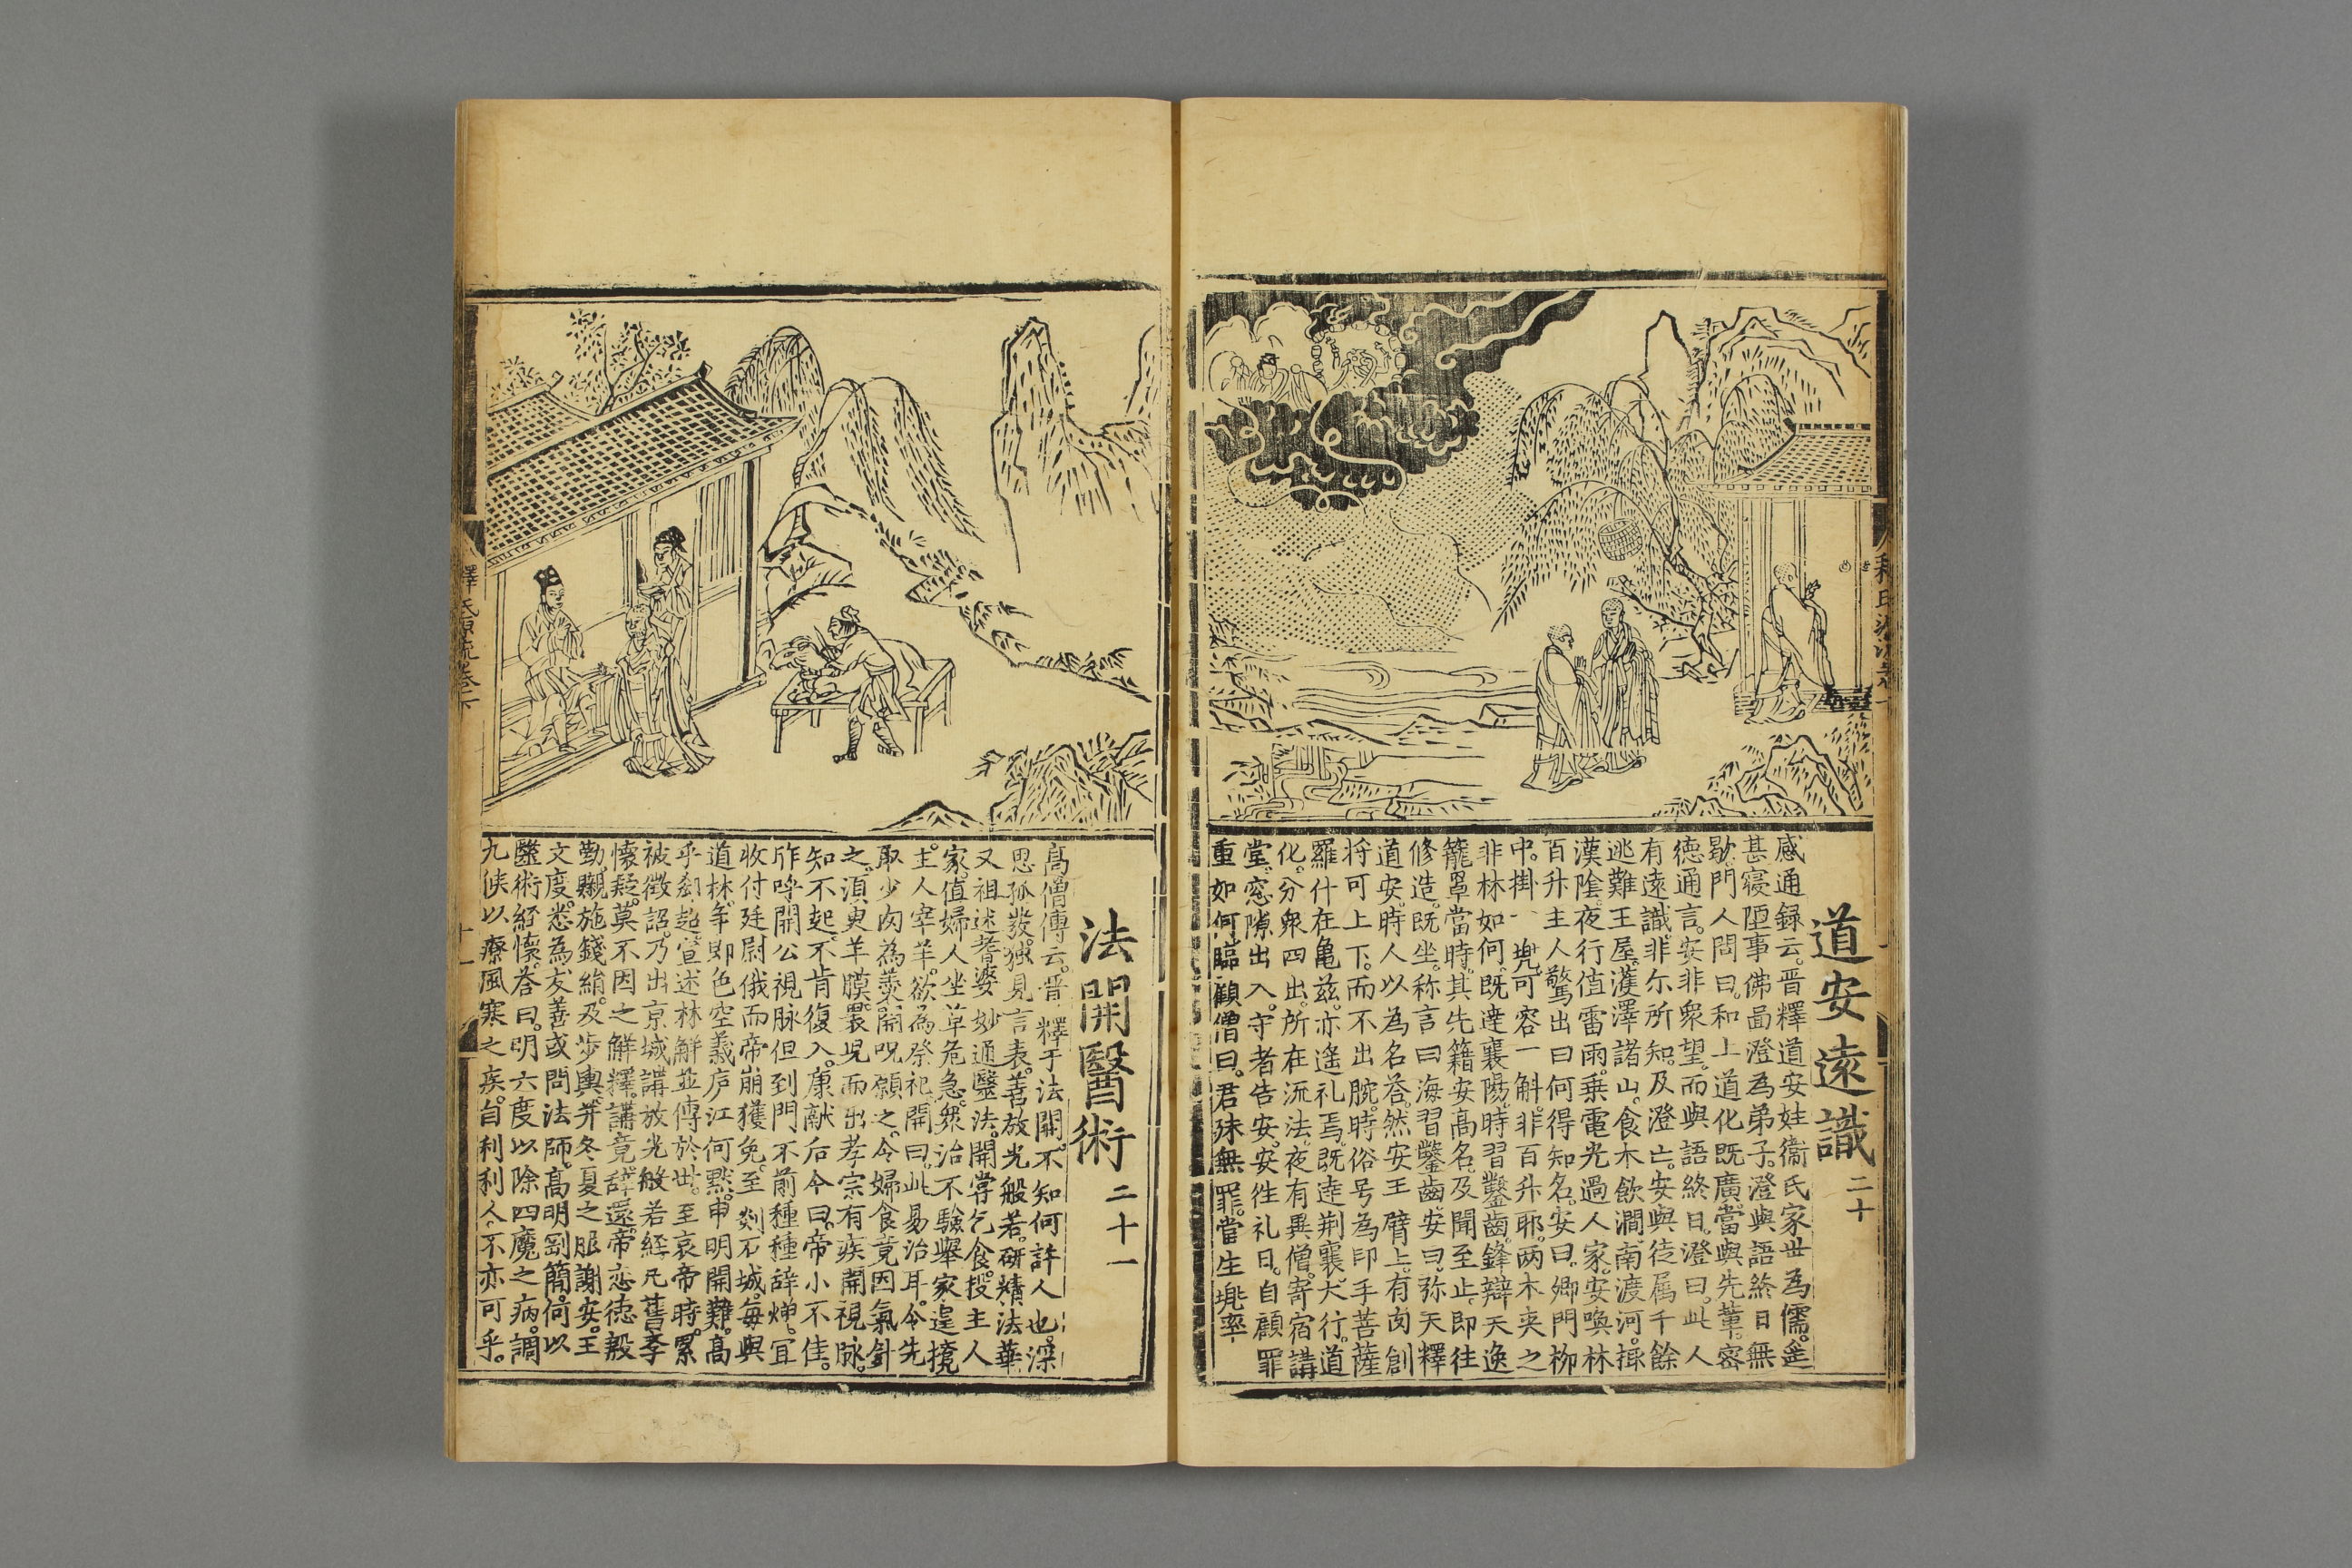 道安遠識 二十
感通録云。晋釋道安姓衞氏家世為儒。
甚寢陋事佛圖澄為弟子。澄與語終日無
歇。門人問曰。和上道化既廣。當與先輩。容
徳通言。安非衆望。而與語終日。澄曰。此人
有遠識。非尓所知。及澄亡。安與徒属千餘
逃難王屋。濩澤諸山。食木飲澗。南渡河。
漢陰。夜行值雷雨。乗電光過人家。安喚林
百升主人驚出曰何得知名。安曰。卿門栁
中。掛一兠。可容一斛。非百升耶。两木夹之
非林如何。既達襄陽。時習鑿齒。鋒辯天逸
籠罩當時。其先籍安高名。及聞至止。即往
修造。既坐。称言曰海習鑿齒。安曰。弥天釋
道安。時人以為名荅。然安王臂上。有肉創
将可上下。而不出腕。時俗号為印手菩薩
羅什在亀兹。亦遙礼焉。既達荆襄。大行。道
化。分衆四出。所在流法。夜有異僧。寄宿講
堂。窓隙出入。守者告安。安徃礼曰。自顧罪
重如何臨顧。僧曰。君殊無罪。當生兠率
法開醫術 二十一
高僧傳云。晋釋于法開。不知何許人也。深
思孤發。獨見言表。善放光般若。研精法華
又祖述耆婆。妙通醫法。開嘗乞食。投主人
家。值婦人坐草危急。衆治不驗。舉家遑擾
主人宰羊。欲為祭祀。開曰。此易治耳。令先
取少肉為羹。開呪願之。令婦食竟因氣針
之。湏臾羊膜裹児而出孝宗有疾開視脉。
知不起。不肯復入。康献后令曰。帝小不佳。
昨呼開公視脉。但到門不前種種辞憚。冝
收付廷尉俄而帝崩。獲免。至剡石城。毎與
道林爭即色空義庐江何黙。申明開難。高
乎郄超。宣述林解並傳於世。至哀帝時。累
被徵詔乃出京城講放光般若経凡舊學
懐疑。莫不因之觧釋。講竟辞還。帝恋徳殷
勤。䞋施錢絹。及歩輿。并冬夏之服謝安。王
文度。悉為友善或問法師。高明剛簡。何以
醫術経懐。荅曰。明六度以除四魔之病。調
九候以療風寒之疾。自利利人。不亦可乎。
釋氏源流卷下
十一